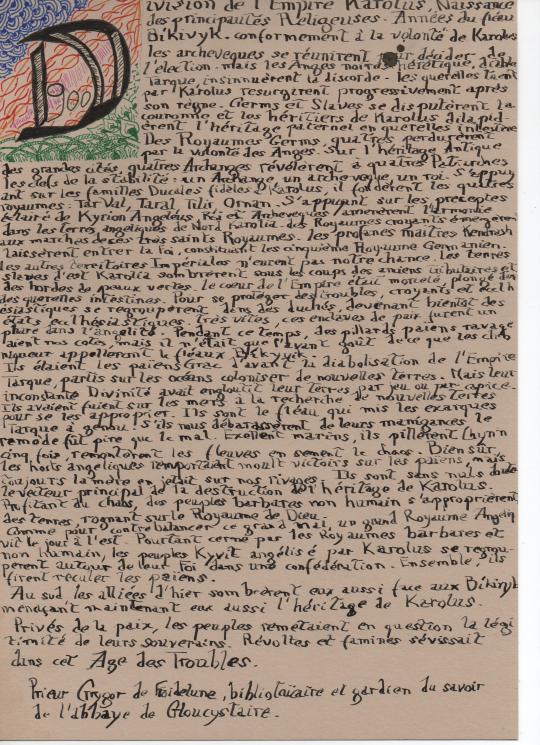 Division de l'Empire Karolus, Naissance
des principautés Religieuses. Années du fléau
Bikivyk. conformement à la volonté de Karolus
les archeveques se réunirent pour décider de
l'élection. mais les Anges noirs, hérétique, diable
Tarque, insinnuèrent la discorde. les querelles
par Karolus resurgirent progressivement après
son règne. Germs et Slaves se disputèrent la
couronne et les héritiers de Karolus
l'héritage paternel en querelles
Des Royaumes Germs, quatres perdurèrent
par la volonté des Anges. Sur l'héritage Antique
des grandes cités, quatres Archanges révélèrent à quatres Patriarches
les clefs de la stabilité: un Archange, un archeveque, un roi. S'appuy
ant sur les familles Ducales fidèles à Karolus, il fondèrent les quatres
royaumes: Tar Val, Taral, Tilis, Ornan. S'appuyant sur les préceptes
éclairé de Kyrion Angeleus, Roi et Archeveques amenèrent l'armonie
dans les terres angeliques de Nord Karolia. des Royaumes croyants émergèrent
aux marches de ces tres saints Royaumes. les profanes maîtres
laissèrent entrer la foi, constituant les cinquième Royaume Germanien.
les autres territoires Impériales n'eurent pas notre chance. Les terres
slaves d'est Karolia sombrèrent sous les coups des anciens tributaires et
des hordes de peaux vertes. le coeur de l'Empire était morcelé, plongé dans
des querelles intestines. Pour se protéger des troubles, croyants et
ésiastiques se regroupèrent dans des duchés, devenant bientôt des
états ecclhésiastiques: très vites, ces enclaves de paix furent un
phare dans l'angélité. Pendant ce temps, des pillards païens ravage
laient nos cotes, mais il n'était que l'avant goût de ce que les
niqueur appellerent le fléaux Bikyvik.
Ils étaient les païens Grac d'avant la diabolisation de l'Empire
Tarque, partis sur les océans coloniser de nouvelles terres. Mais leur
inconstante Divinité avait englouti leur terres par jeu ou par caprice.
Ils avaient fuient sur les mers à la recherche de nouvelles terres
pour se les approprier. Ils sont le fléau qui mis les exarques
Tarque à genou. S'ils nous débarassèrent de leurs manigances le
remède fut pire que le mal. Exellent marins, ils pillèrent
cinq fois, remontèrent les fleuves en sement le chaos. Bien sur
les hosts angeliques remportaient moult victoirs sur les païens, mais
toujours la mère en jetait sur nos rivages. Ils sont sans nuls doute
le vecteur principal de la destruction de l'héritage de Karolus.
Profitant du chaos, des peuples barbares non humain s'approprièrent
des terres, rognant sur le Royaume de Dieu.
Comme pour contrebalancer ce grand mal, un grand Royaume Angelin
vit le jour à l'est. Pourtant cerné par les Royaumes barbares et
non humain, les peuples Kyvit angélisé par Karolus se regrou-
pèrent autour de leur Foi dans une confédération. Ensemble, ils
firent reculer les païens.
Au sud les alliées d'hier sombrèrent eux aussi face aux Bikiryk
menaçant maintenant eux aussi l'héritage de Karolus.
Privés de la paix, les peuples remetaient en question la légi
timité de leurs souverains. Révoltes et famines sévissait
dans cet Age des Troubles.
Prieur Grygor de Foidelune, bibliotaicaire et gardien du savoir
de l'abbaye de Gloucystaire.